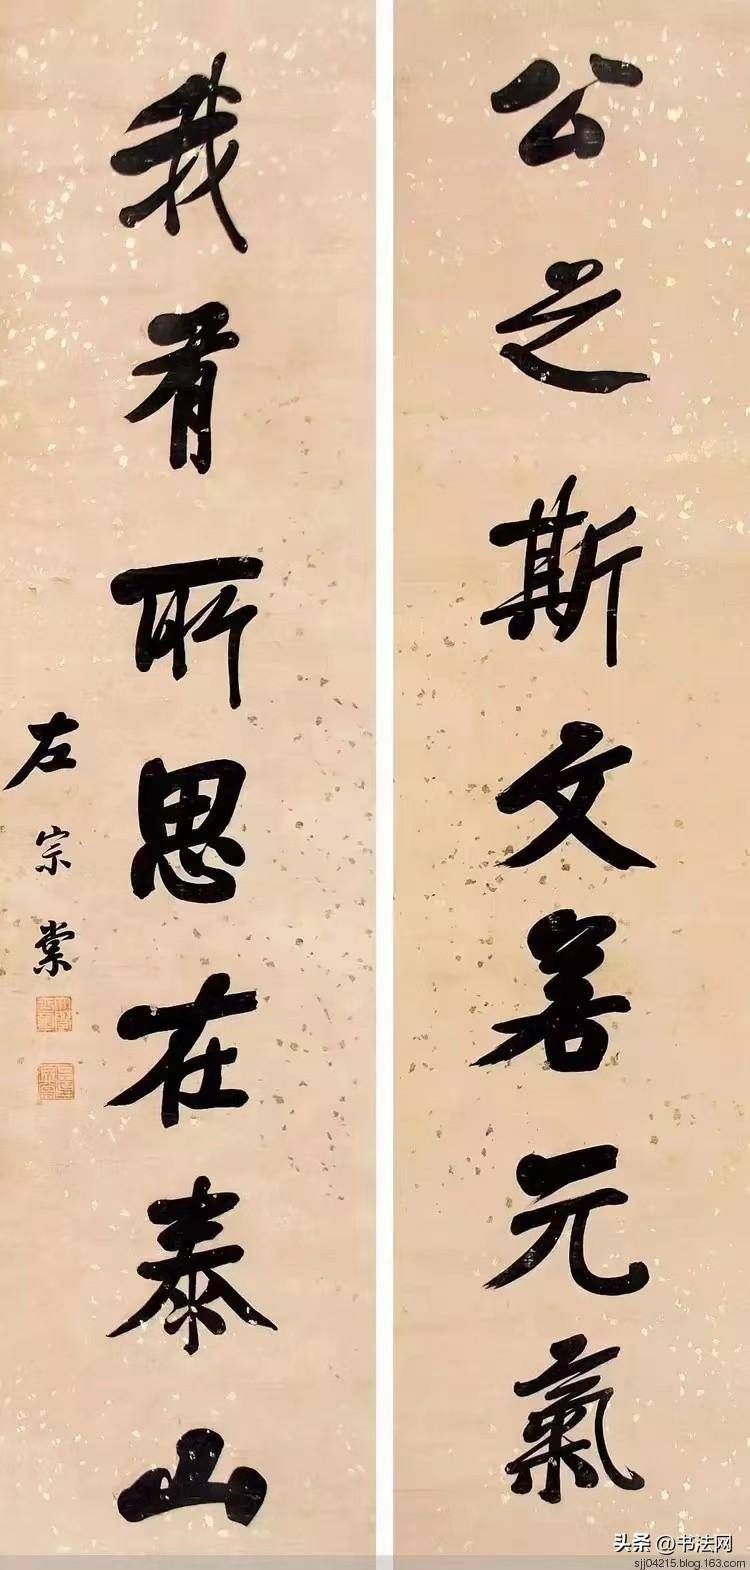 公之斯文若元氣
我有所思在泰山
左宗棠
头条 @书法网
sjj04215.blog.163.com